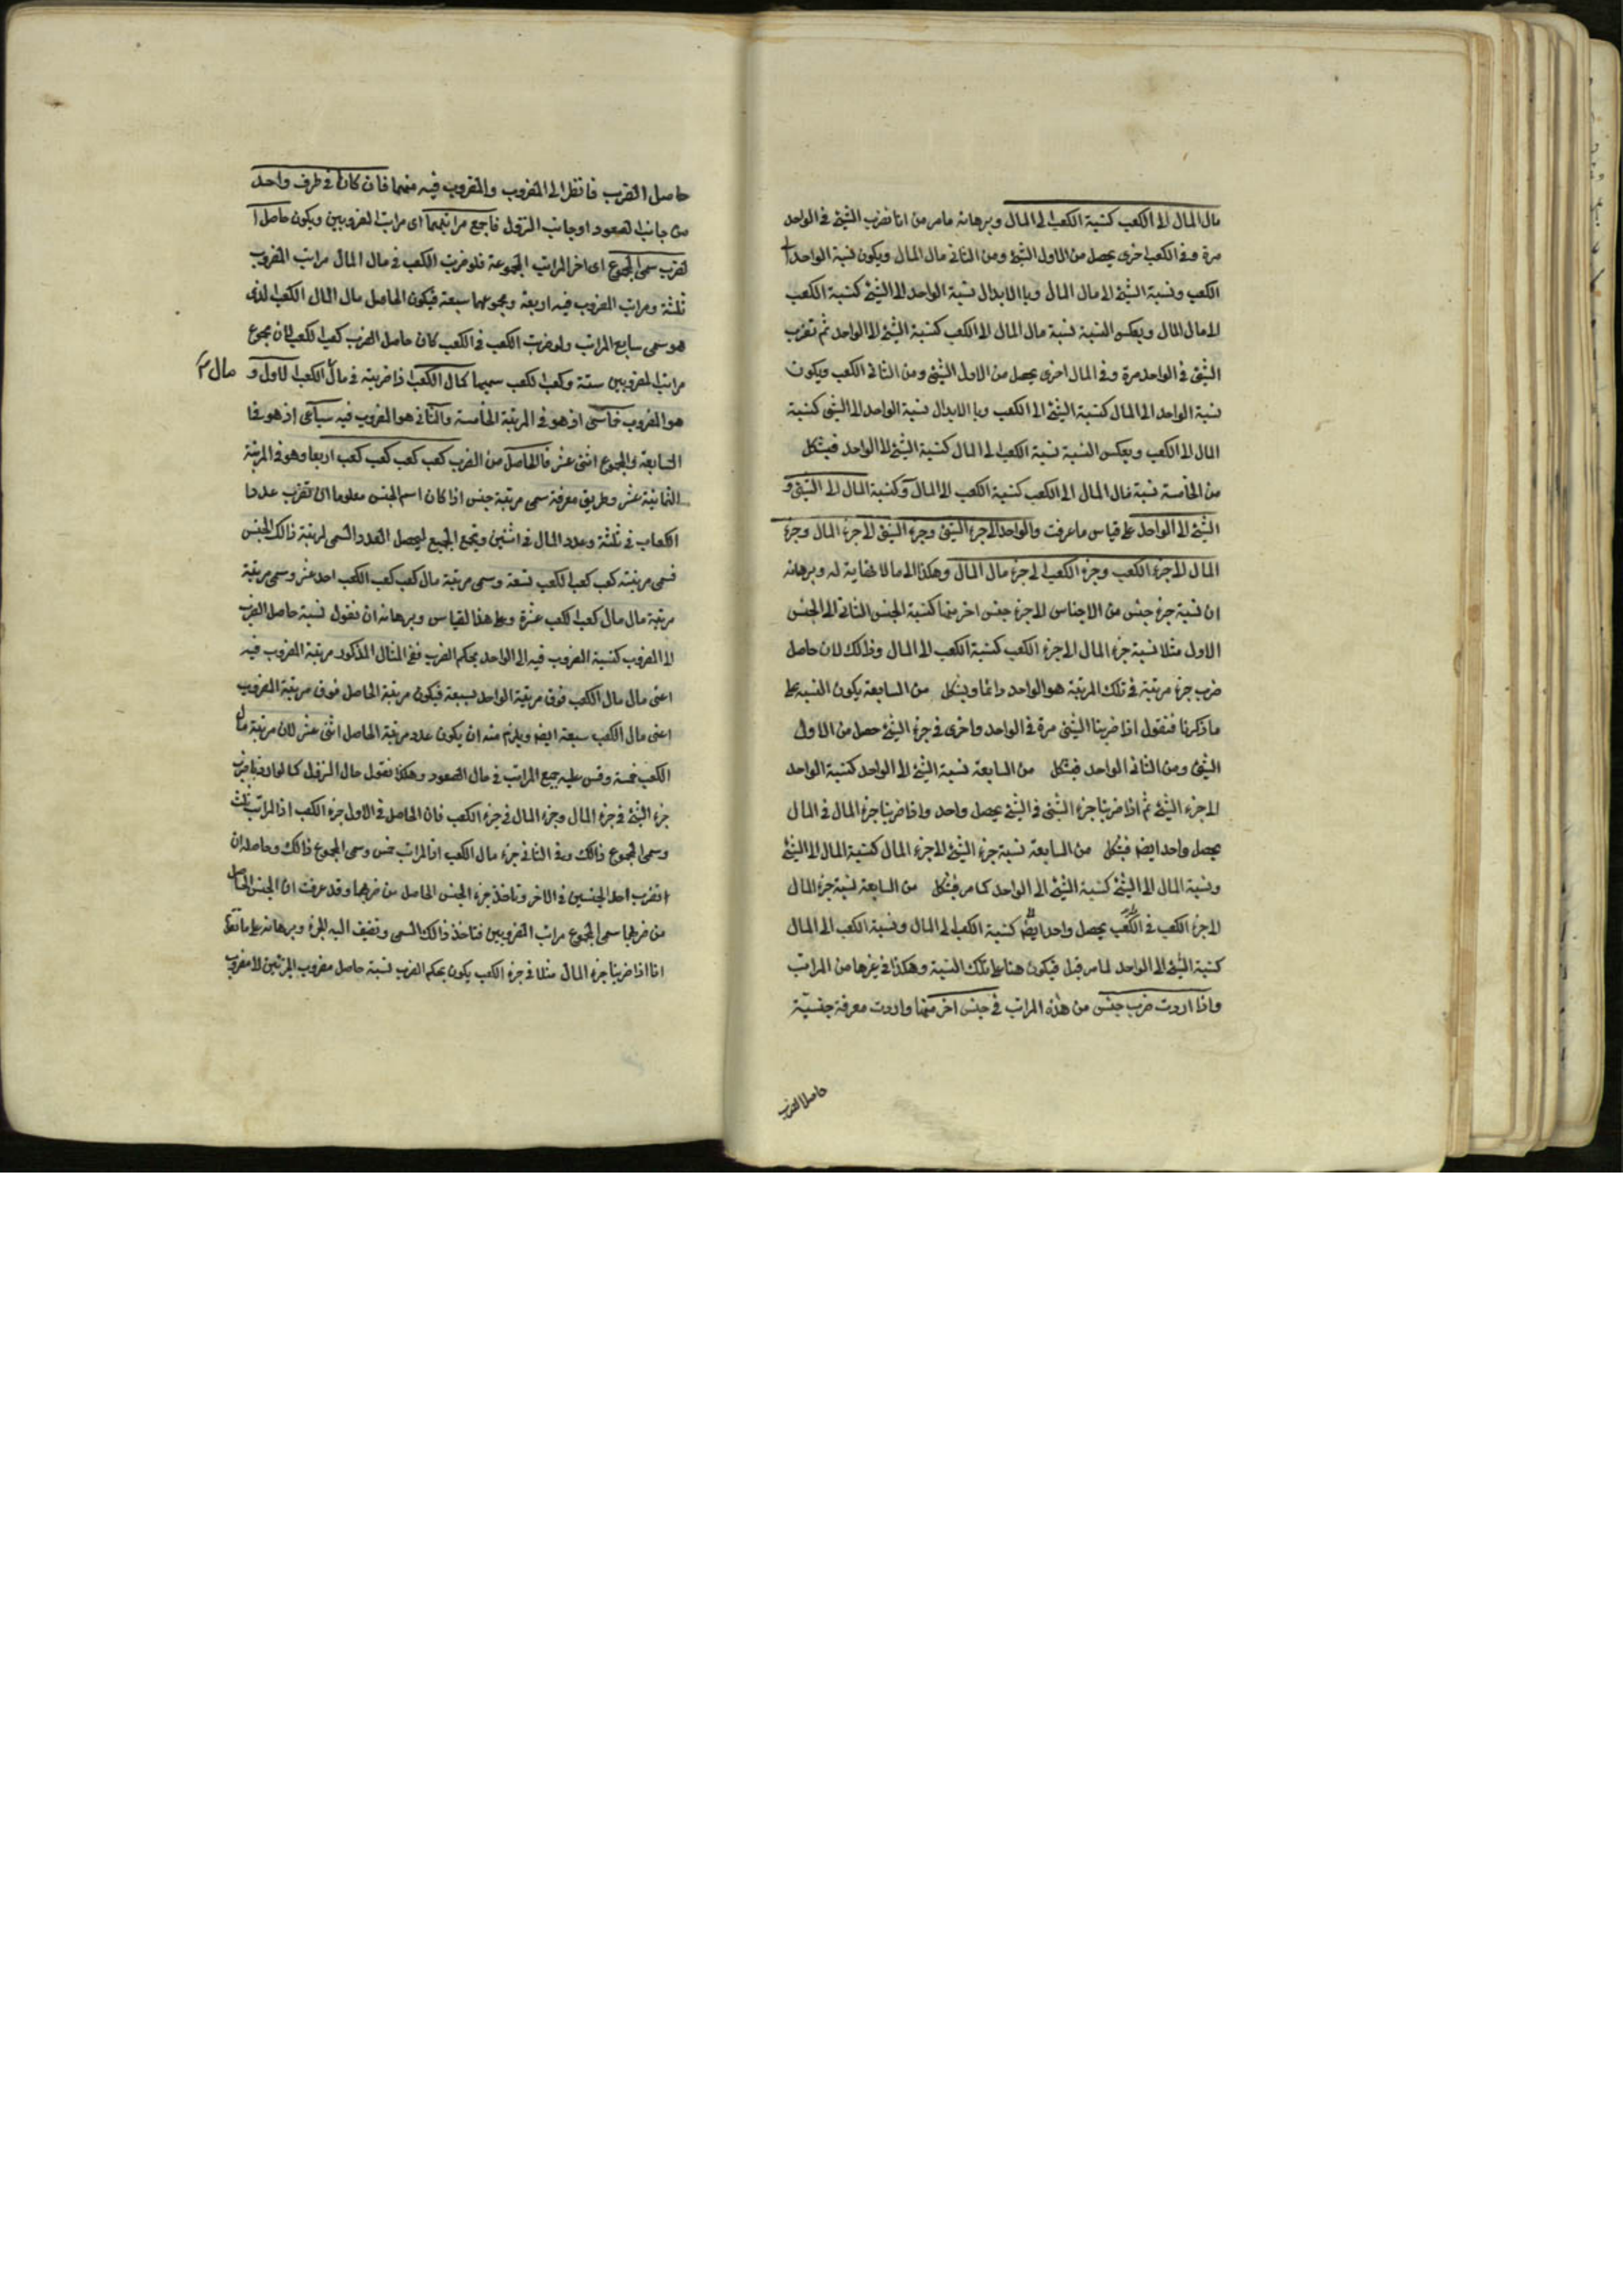 مال المال الى الكعب كنسبة الكعب الى المال وبرهانه مامر من انا نضرب الشئ فى الواحد
مرة وفى الكعب اخرى يحصل من الاول الشئ ومن الثانى مال المال ويكون نسبة الواحد الى
الكعب ونسبة الشئ الى مال المال وبالابدال نسبة الواحد الى الشئ كنسبة الكعب
الى مال المال وبعكس النسبة نسبة مال المال الى الكعب كنسبة الشئ الى الواحد ثم نضرب
الشئ فى الواحد مرة وفى المال اخرى يحصل من الاول الشئ ومن الثانى الكعب ويكون
نسبة الواحد الى المال كنسبة الشئ الى الكعب وبالابدال نسبة الواحد الى الشئ كنسبة
المال الى الكعب وبعكس النسبة نسبة الكعب الى المال كنسبة الشئ الى الواحد فبشكل
من الخامسة نسبة مال المال الى الكعب كنسبة الكعب الى المال وكنسبة المال الى الشئ و
الشئ الى الواحد على قياس ماعرفت والواحد الى جزء الشئ وجزء الشئ الى جزء المال وجزء
المال الى جزء الكعب وجزء الكعب الى جزء مال المال وهكذا الى مالا نهاية له وبرهانه
ان نسبة جزء جنس من الاجناس الى جزء جنس اخر منها كنسبة الجنس الثانى الى الجنس
الاول مثلا نسبة جزء المال الى جزء الكعب كنسبة الكعب الى المال وذالك لان حاصل
ضرب جزء مرتبة فى تلك المرتبة هو الواحد دائما وبشكل من السابعة يكون النسبة على
ماذكرنا فنقول اذا ضربنا الشئ مرة فى الواحد واخرى فى جزء الشئ حصل من الاول
الشئ ومن الثانى الواحد فبشكل من السابعة نسبة الشئ الى الواحد كنسبة الواحد
الى جزء الشئ ثم اذا ضربنا جزء الشئ فى الشئ يحصل واحد واذا ضربنا جزء المال فى المال
يحصل واحد ايضا فبشكل من السابعة نسبة جزء الشئ الى جزء المال كنسبة المال الى الشئ
ونسبة المال الى الشئ كنسبة الشئ الى الواحد كما مر فبشكل من السابعة نسبة جزء المال
الى جزء الكعب فى الكعب يحصل واحد ايضا كنسبة الكعب الى المال ونسبة الكعب الى المال
كنسبة الشئ الى الواحد لما مر قبل فيكون هنا على تلك النسبة وهكذا فى غيرها من المراتب
واذا اردت ضرب جنس من هذه المراتب فى جنس اخر منها واردت معرفة جنسية
حاصل الضرب
حاصل الضرب فانظر الى المضروب والمضروب فيه منهما فان كانا فى طرف واحد
من جانب الصعود او جانب النزول فاجمع مراتبهما اى مراتب المضروبين ويكون حاصل ا
لضرب سمى المجموع اى اخر المراتب المجموعة فلو ضربت الكعب فى مال المال مراتب المضروب
ثلثة ومراتب المضروب فيه اربعة ومجموعهما سبعة فيكون الحاصل مال المال الكعب الذى
هو سمى سابع المراتب ولو ضربت الكعب فى الكعب كان حاصل الضرب كعب الكعب لان مجموع
مراتب المضروبين ستة وكعب الكعب سميها كمال الكعب اذا ضربته فى مال الكعب الاول و
مال
هو المضروب خماسى اذ هو فى المرتبة الخامسة والثانى هو المضروب فيه سباعى اذ هو فى ا
السابعة والمجموع اثنى عشر فالحاصل من الضرب كعب كعب كعب كعب اربعا وهو فى المرتبة
الثمانية عشر وطريق معرفة سمى مرتبة جنس اذا كان اسم الجنس معلوما ان تضرب عدد ا
الكعاب فى ثلثة وعدد المال فى اثنين وتجمع الجميع ليحصل العدد السمى لمرتبة ذالك الجنس
فسمى مرتبته كعب كعب الكعب تسعة وسمى مرتبة مال كعب كعب الكعب احد عشر وسمى مرتبة
مرتبة مال مال كعب الكعب عشرة وعلى هذا القياس وبرهانه ان نقول نسبة حاصل الضرب
الى المضروب كنسبة المضروب فيه الى الواحد بحكم الضرب ففى المثال المذكور مرتبة المضروب فيه
اعنى مال مال الكعب فوق مرتبة الواحد بسبعة فيكون مرتبة الحاصل فوق مرتبة المضروب
اعنى مال الكعب سبعة ايضا ويلزم منه ان يكون عدد مرتبة الحاصل اثنى عشر لان مرتبة مال
الكعب خمسة وقس عليه جميع المراتب فى حال الصعود وهكذا نقول حال النزول كما لو اردنا ضرب
جزء الشئ فى جزء المال وجزء المال فى جزء الكعب فان الحاصل فى الاول جزء الكعب اذ المراتب ثلث
وسمى المجموع ذالك وفى الثانى جزء مال الكعب اذ المراتب خمس وسمى المجموع ذالك وحاصله ان
تضرب احد الجنسين فى الاخر وتاخذ جزء الجنس الحاصل من ضربهما وقد عرفت ان الجنس الحاصل
من ضربهما سمى المجموع مراتب المضروبين فتاخذ ذالك السمى وتضيف اليه الجزء وبرهانه على ما تقدم
انا اذا ضربنا جزء المال مثلا فى جزء الكعب يكون بحكم الضرب نسبة حاصل مضروب الجزئين الى مضروب